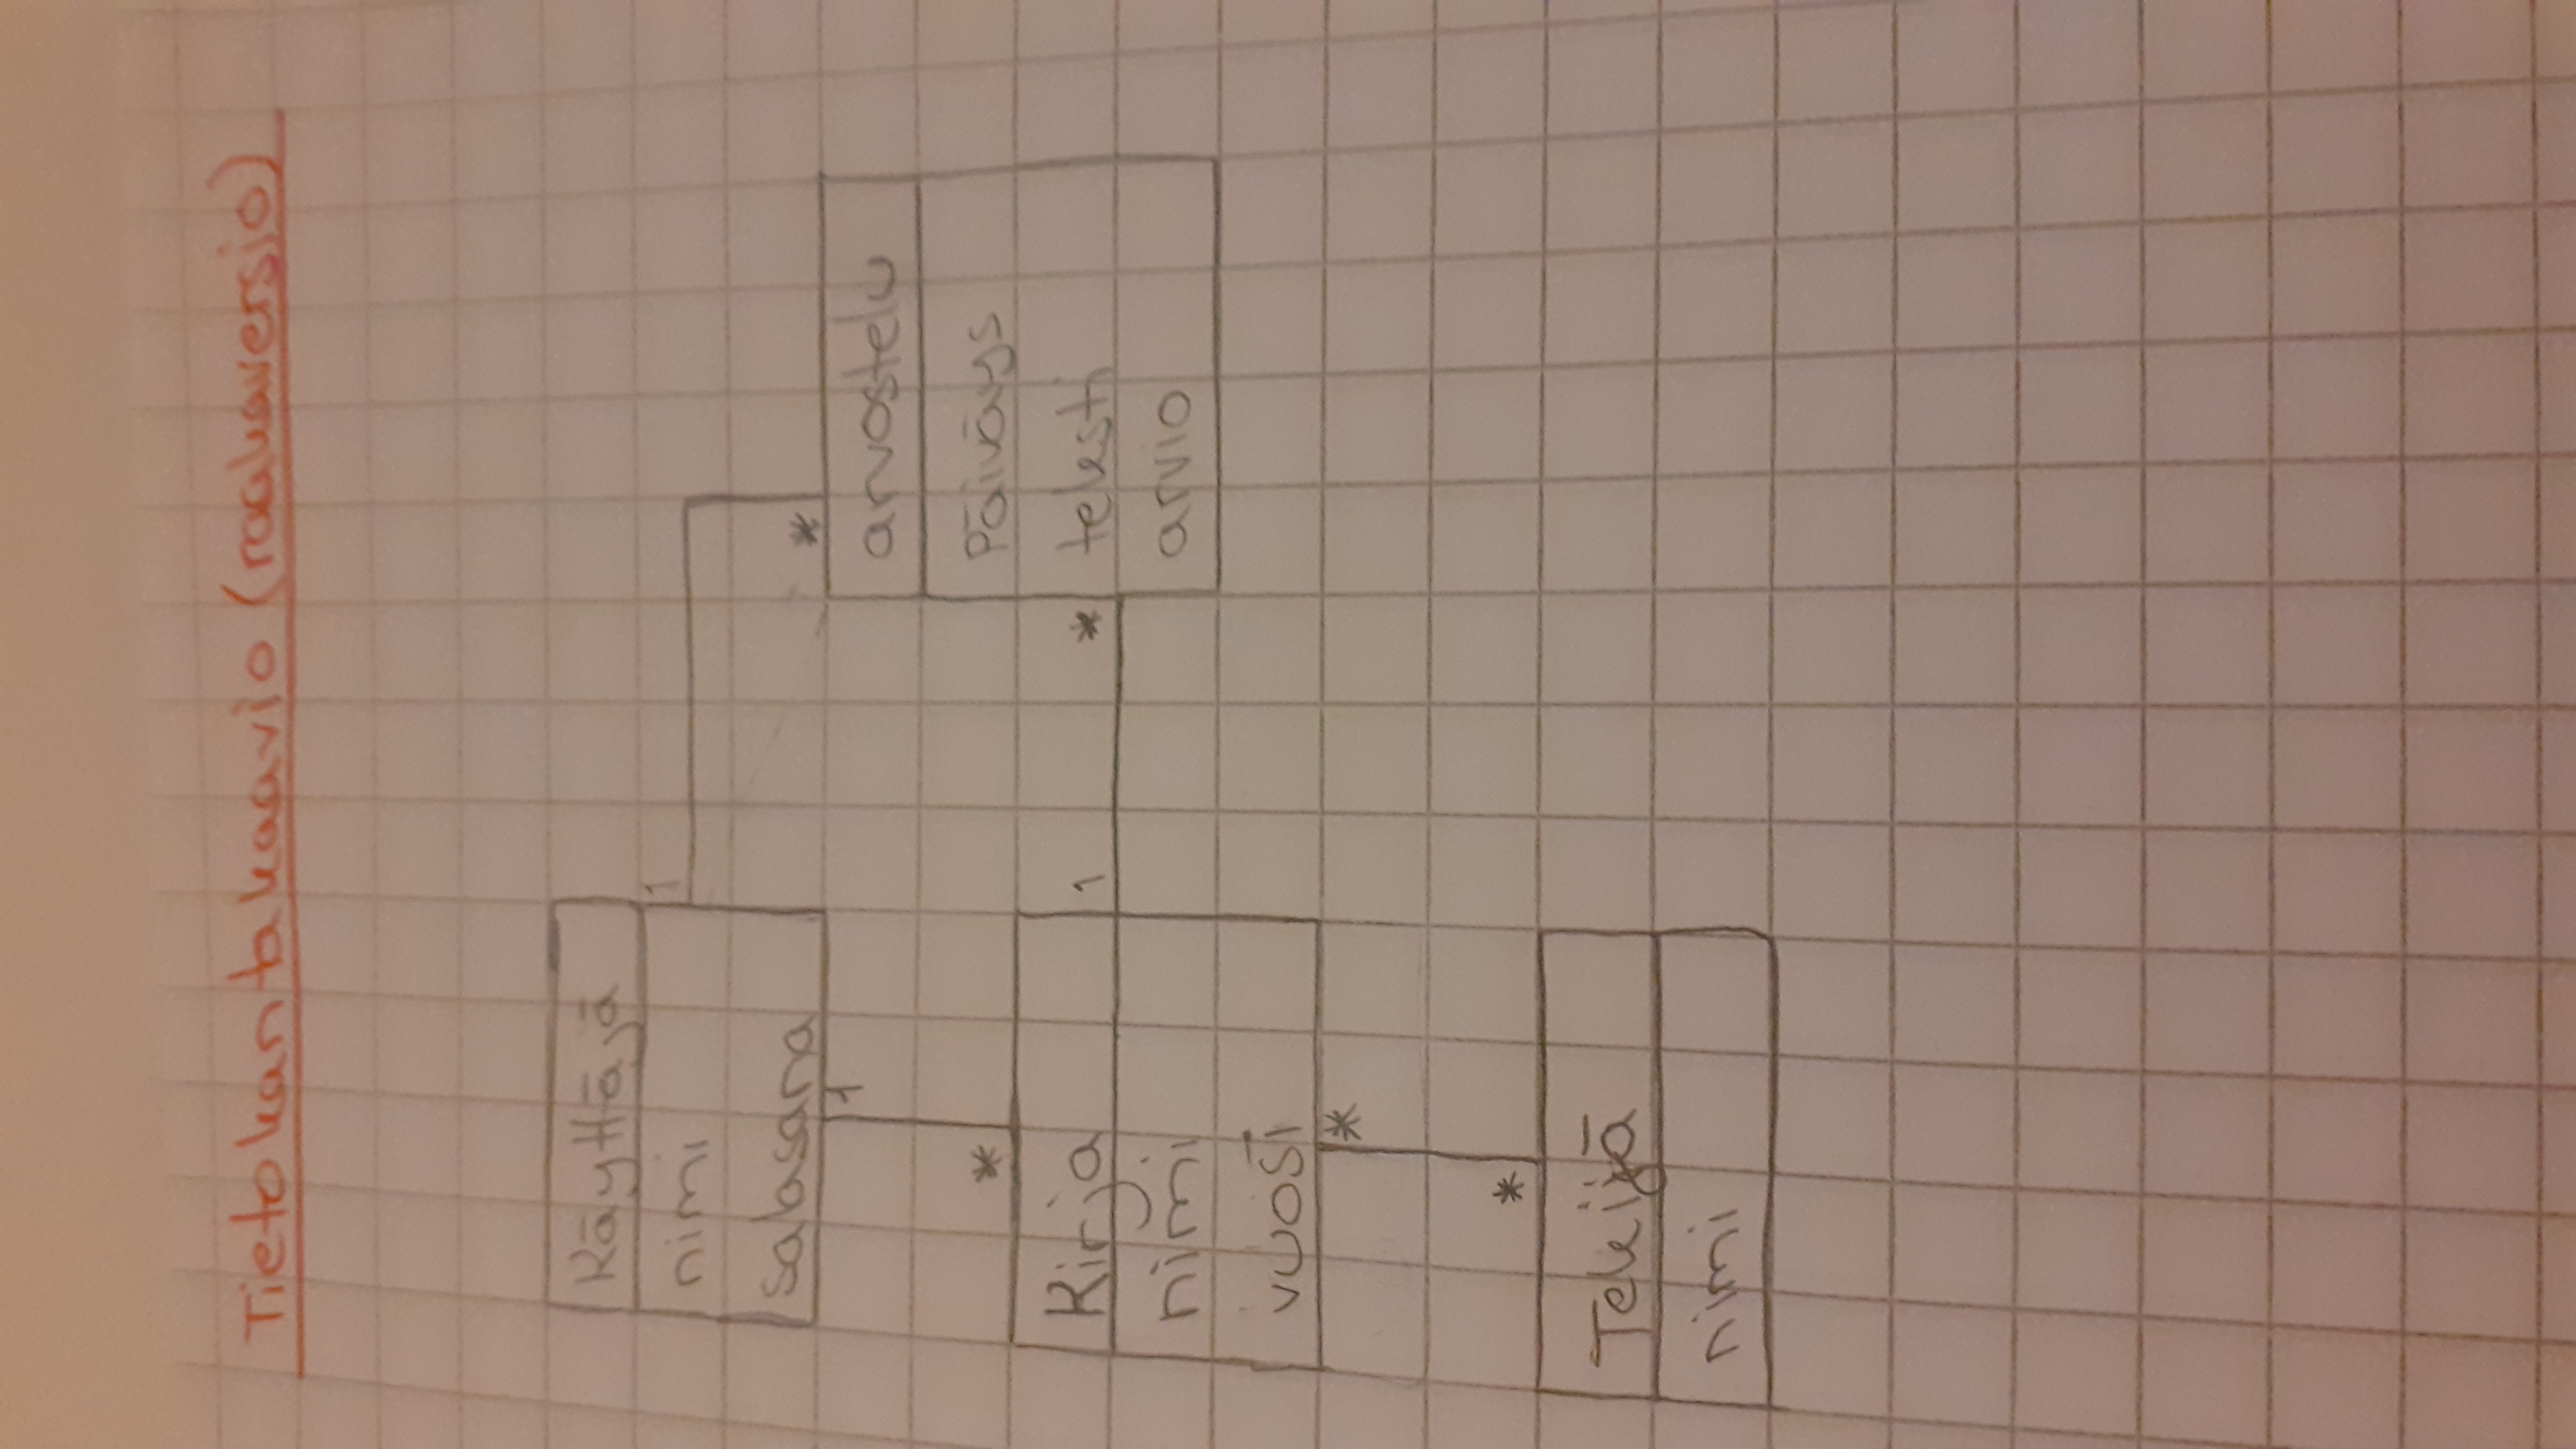 Tietokantakaavio (raakaversio)
Käyttäjä
nimi
salasana
1
*
1
*
arvostelu
Päiväys
teksti
arvio
Kirja
nimi
vuosi
1
*
*
*
Tekijä
nimi